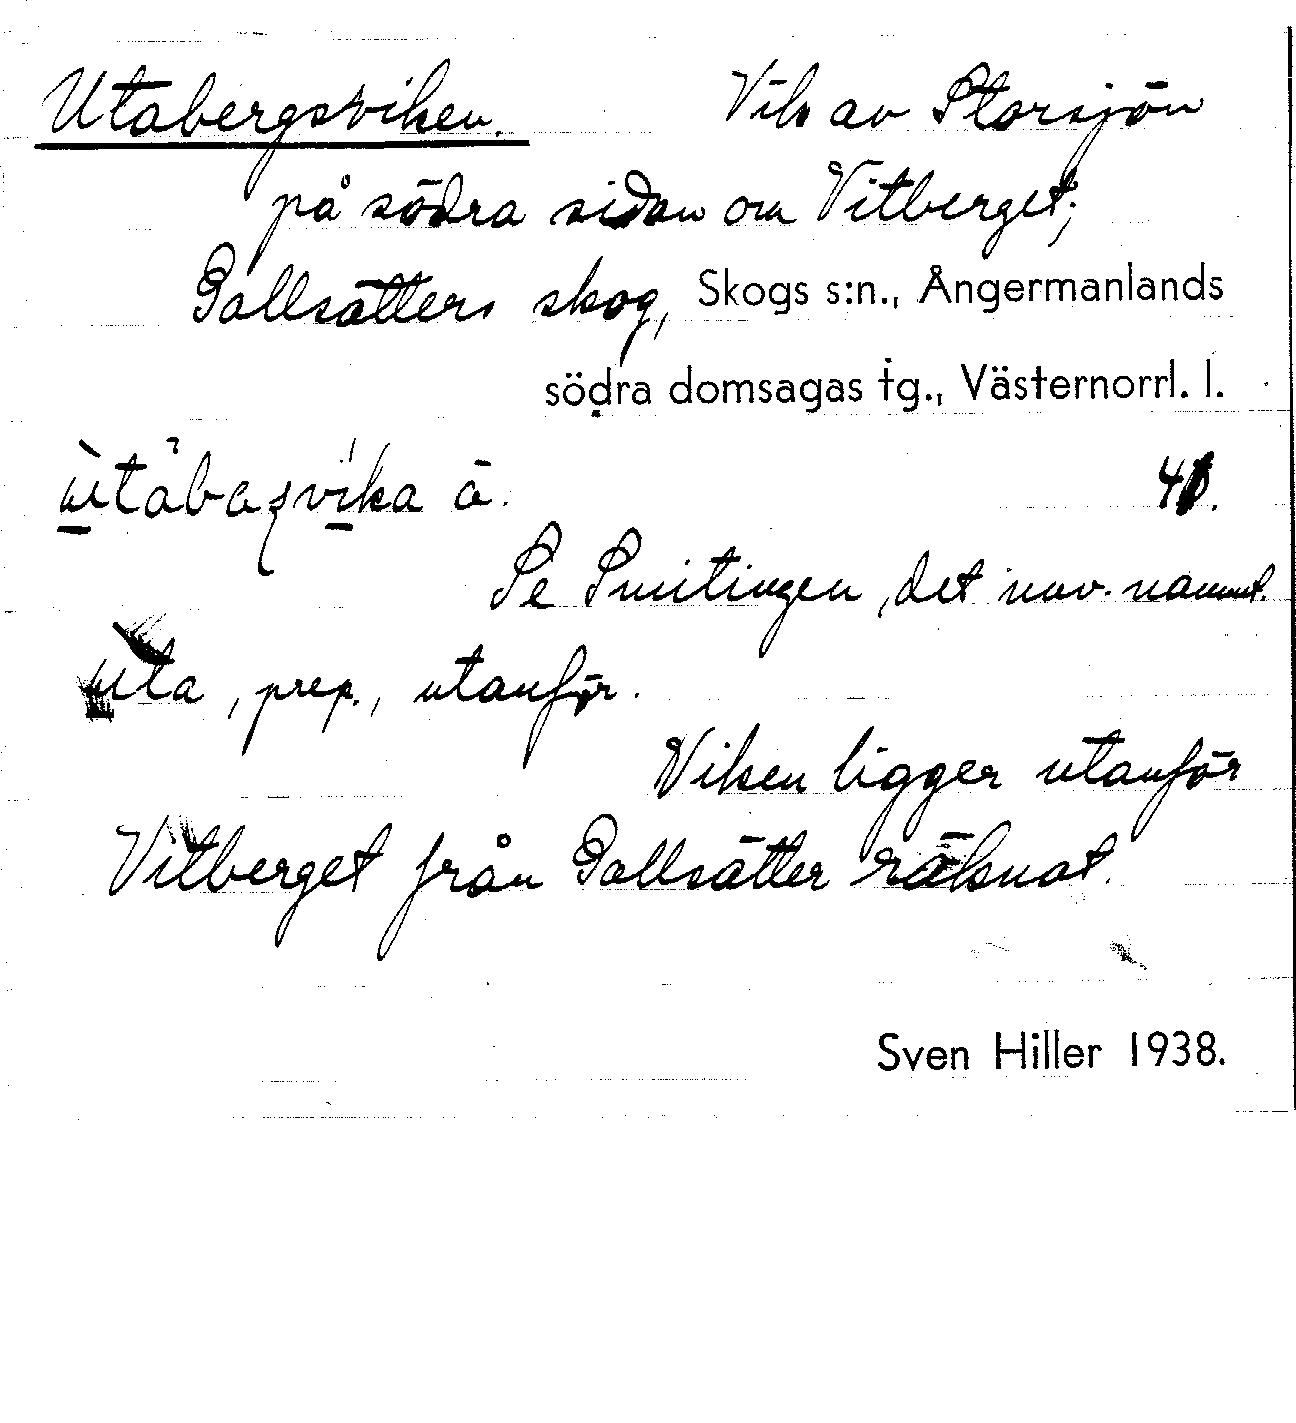 Utabergsviken. Vik av Storsjön
på södra sidan om Vitberget;
Gallsätters skog, Skogs s:n., Ångermanlands
södra domsagas tg., Västernorrl. l.
ā.
Se Smitingen, det inv. namnet.
uta, prep., utanför.
Viken ligger utanför
Vitberget från Gallsätter räknat.
Sven Hiller 1938.